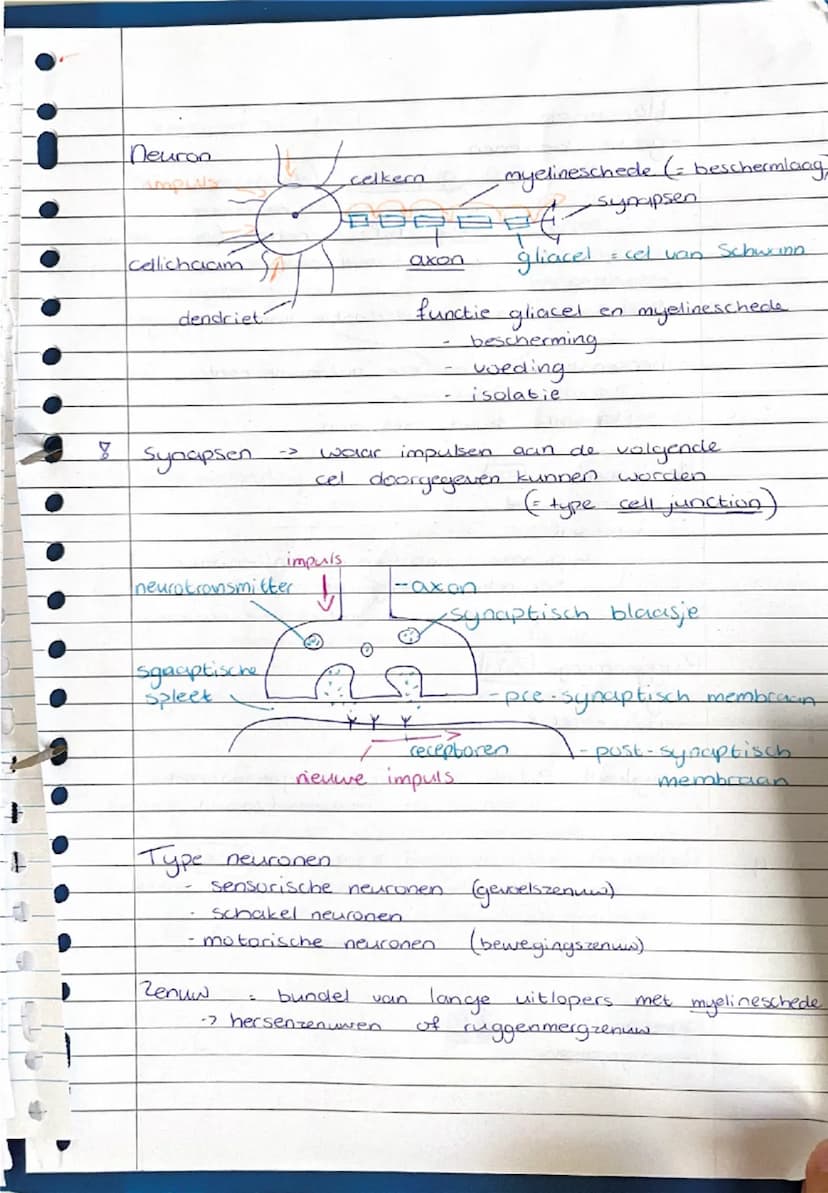 Neuron
impuls
celkern
myelineschede (= beschermlaag)
synapsen
cellichaam
axon
gliacel = cel van Schwann
dendriet
functie gliacel en myelineschede
- bescherming
- voeding
- isolatie
8 Synapsen -> waar impulsen aan de volgende
cel doorgegeven kunnen worden
(= type cell junction)
impuls
neurotransmitter
- axon
synaptisch blaasje
synaptische
spleet
- pre-synaptisch membraan
receptoren
- post-synaptisch
nieuwe impuls
membraan
Type neuronen
- sensorische neuronen (gevoelszenuw)
- schakel neuronen
- motorische neuronen (bewegingszenuw)
Zenuw = bundel van lange uitlopers met myelineschede
-> hersenzenuwen of ruggenmergzenuw